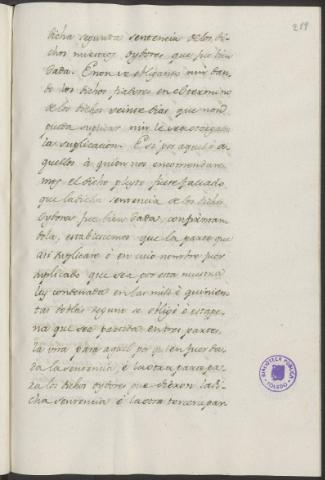 219
dicha segunda sentencia de los di-
chos nuestros oydores que fue bien
dada. E non se obligante nin dan-
do los dichos fiadores en el termino
de los dichos veinte dias que non
pueda suplicar nin le sea otorgada
la suplicacion. E si por aquel o a-
quellos à quien nos encomendare-
mos el dicho pleyto fuere fallado
que la dicha sentencia de los dichos
Oydores fue bien dada, confirmam-
dola, establecemos que la parte que
asi suplicare è en cuio nombre fuer
suplicado que sea por esta nuestra
ley condenada en las mill è quinien-
tas doblas segund se obligò è esta pe-
na que sea partida en tres partes,
la una para aquel por quien fuer da-
da la sentencia, è la otra parte pa-
ra los dichos oydores que dieron la di-
cha sentencia è la otra tercera par
BIBLIOTECA PUBLICA
TOLEDO